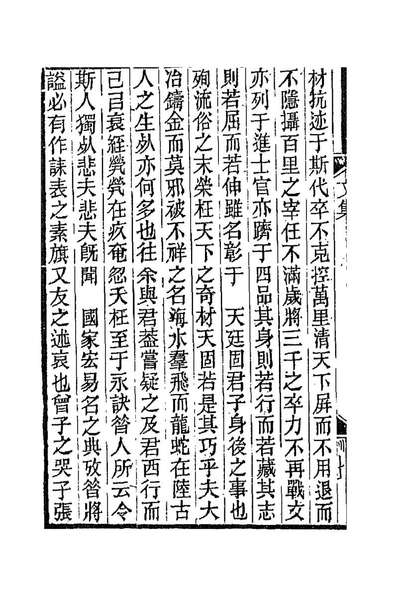 材抗迹于斯代卒不克控萬里清天下屏而不用退而
不隱攝百里之宰任不滿歲將三千之卒力不再戰文
亦列于進士官亦躋于四品其身則若行而若藏其志
則若屈而若伸雖名彰于　天廷固君子身後之事也
殉流俗之末榮枉天下之奇材天固若是其巧乎夫大
冶鑄金而莫邪被不祥之名海水羣飛而龍蛇在陸古
人之生𣦸亦何多也往余與君葢嘗疑之及君西行而
己㠯衰絰煢煢在疚奄忽夭枉至于永訣昝人所云令
斯人獨𣦸悲夫悲夫旣聞　國家宏易名之典攷昝將
謚必有作誄表之素旗又友之述哀也曾子之哭子張
文集